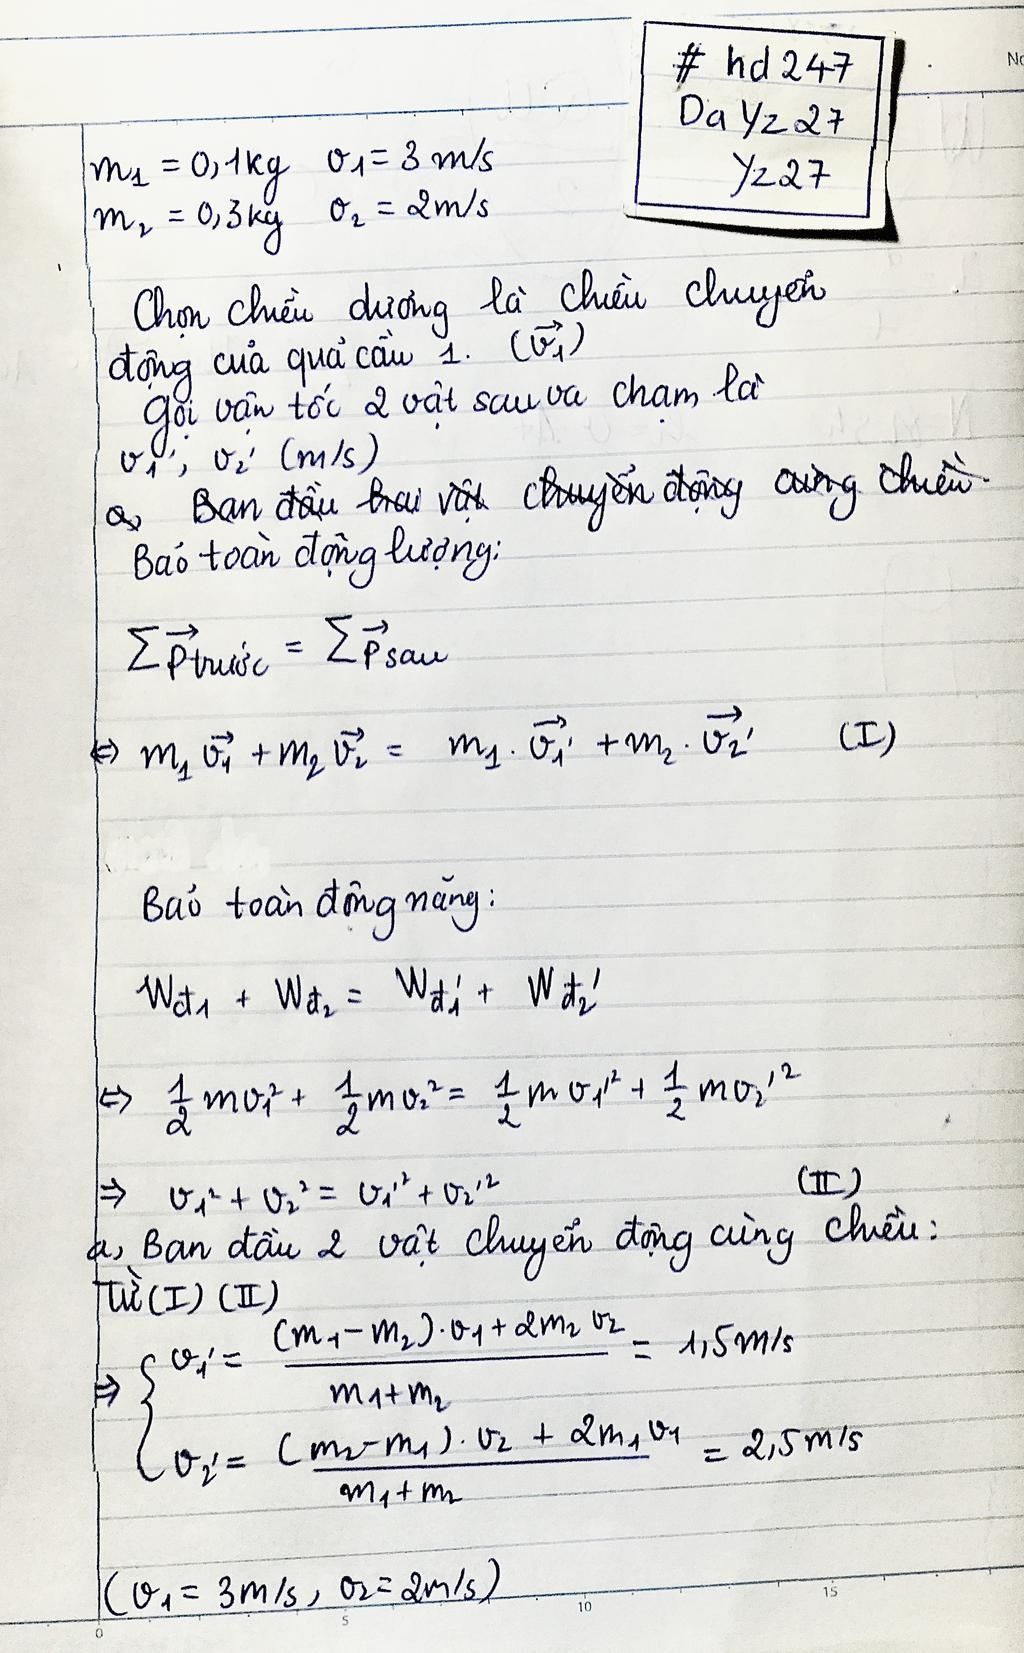 # hd 247
Da Yz 27
Yz 27
No
m₁ = 0,1kg v₁ = 3 m/s
m₂ = 0,3kg v₂ = 2m/s
Chọn chiều dương là chiều chuyển
động của quả cầu 1. (v₁→)
Gọi vận tốc 2 vật sau va chạm là
v₁', v₂' (m/s)
a, Ban đầu hai vật chuyển động cùng chiều.
Bảo toàn động lượng:
∑p→trước = ∑p→sau
⇔ m₁ v₁→ + m₂ v₂→ = m₁ . v₁'→ + m₂ . v₂'→ (I)
Bảo toàn động năng:
Wđ₁ + Wđ₂ = Wđ₁' + Wđ₂'
⇔ 1/2 mv₁² + 1/2 mv₂² = 1/2 m v₁'² + 1/2 mv₂'²
⇒ v₁² + v₂² = v₁'² + v₂'² (II)
a, Ban đầu 2 vật chuyển động cùng chiều:
Từ (I) (II)
⇒ { v₁' = (m₁-m₂).v₁ + 2m₂ v₂ / m₁+m₂ = 1,5m/s
v₂' = (m₂-m₁).v₂ + 2m₁v₁ / m₁+m₂ = 2,5m/s
(v₁ = 3m/s, v₂ = 2m/s)
0 5 10 15